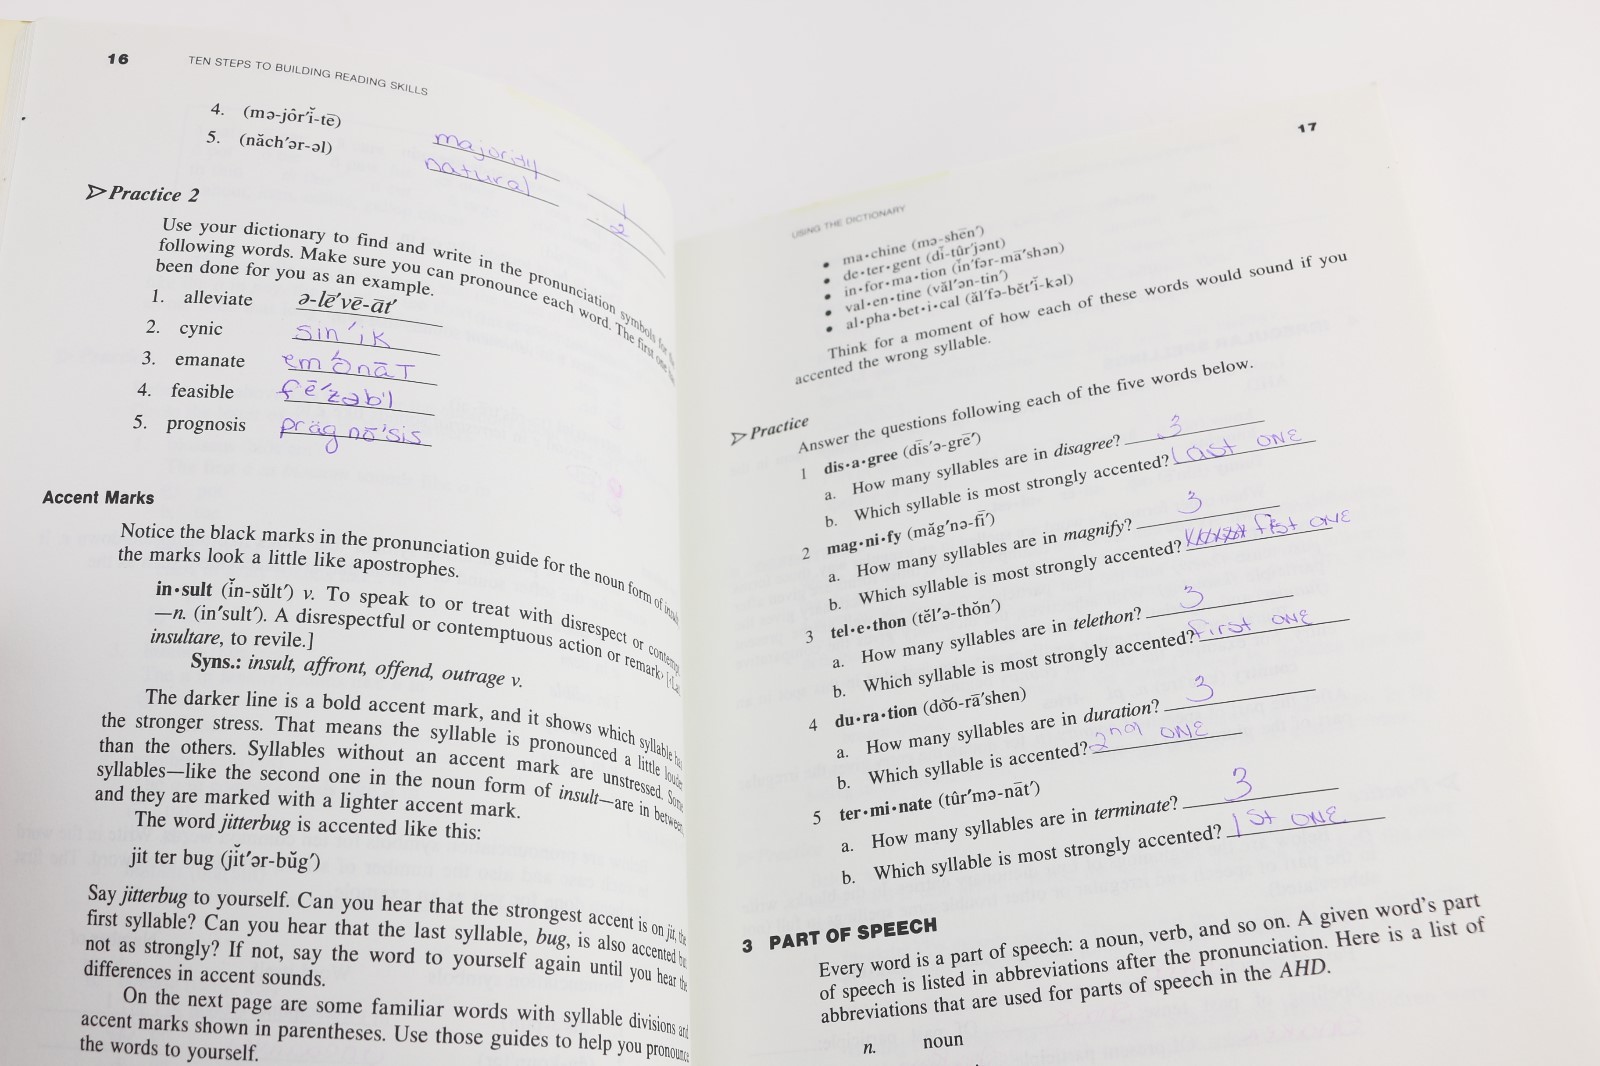 16
TEN STEPS TO BUILDING READING SKILLS
4. (mə-jôr′ĭ-tē) majority
5. (năch′ər-əl) natural
1
2
▷ Practice 2
Use your dictionary to find and write in the pronunciation symbols for the
following words. Make sure you can pronounce each word. The first one
been done for you as an example.
1. alleviate ə-lē′vē-āt′
2. cynic sin′ik
3. emanate em′ənāT
4. feasible fē′zəb'l
5. prognosis präg nō′sis
Accent Marks
Notice the black marks in the pronunciation guide for the noun form of insult
the marks look a little like apostrophes.
in•sult (ĭn-sŭlt′) v. To speak to or treat with disrespect or contemp
—n. (in′sult′). A disrespectful or contemptuous action or remark. [<La
insultare, to revile.]
Syns.: insult, affront, offend, outrage v.
The darker line is a bold accent mark, and it shows which syllable has
the stronger stress. That means the syllable is pronounced a little louder
than the others. Syllables without an accent mark are unstressed. Some
syllables—like the second one in the noun form of insult—are in between,
and they are marked with a lighter accent mark.
The word jitterbug is accented like this:
jit ter bug (jĭt′ər-bŭg′)
Say jitterbug to yourself. Can you hear that the strongest accent is on jit, the
first syllable? Can you hear that the last syllable, bug, is also accented but
not as strongly? If not, say the word to yourself again until you hear the
differences in accent sounds.
On the next page are some familiar words with syllable divisions and
accent marks shown in parentheses. Use those guides to help you pronounce
the words to yourself.
17
USING THE DICTIONARY
• ma•chine (mə-shēn′)
• de•ter•gent (dĭ-tûr′jənt)
• in•for•ma•tion (ĭn′fər-mā′shən)
• val•en•tine (văl′ən-tīn′)
• al•pha•bet•i•cal (ăl′fə-bĕt′ĭ-kəl)
Think for a moment of how each of these words would sound if you
accented the wrong syllable.
▷ Practice
Answer the questions following each of the five words below.
1 dis•a•gree (dĭs′ə-grē′)
a. How many syllables are in disagree? 3
b. Which syllable is most strongly accented? last ONE
2 mag•ni•fy (măg′nə-fī′)
a. How many syllables are in magnify? 3
b. Which syllable is most strongly accented? fist ONE
3 tel•e•thon (tĕl′ə-thŏn′)
a. How many syllables are in telethon? 3
b. Which syllable is most strongly accented? first ONE
4 du•ra•tion (do͝o-rā′shen)
a. How many syllables are in duration? 3
b. Which syllable is accented? 2nd ONE
5 ter•mi•nate (tûr′mə-nāt′)
a. How many syllables are in terminate? 3
b. Which syllable is most strongly accented? 1st ONE
3 PART OF SPEECH
Every word is a part of speech: a noun, verb, and so on. A given word's part
of speech is listed in abbreviations after the pronunciation. Here is a list of
abbreviations that are used for parts of speech in the AHD.
n. noun